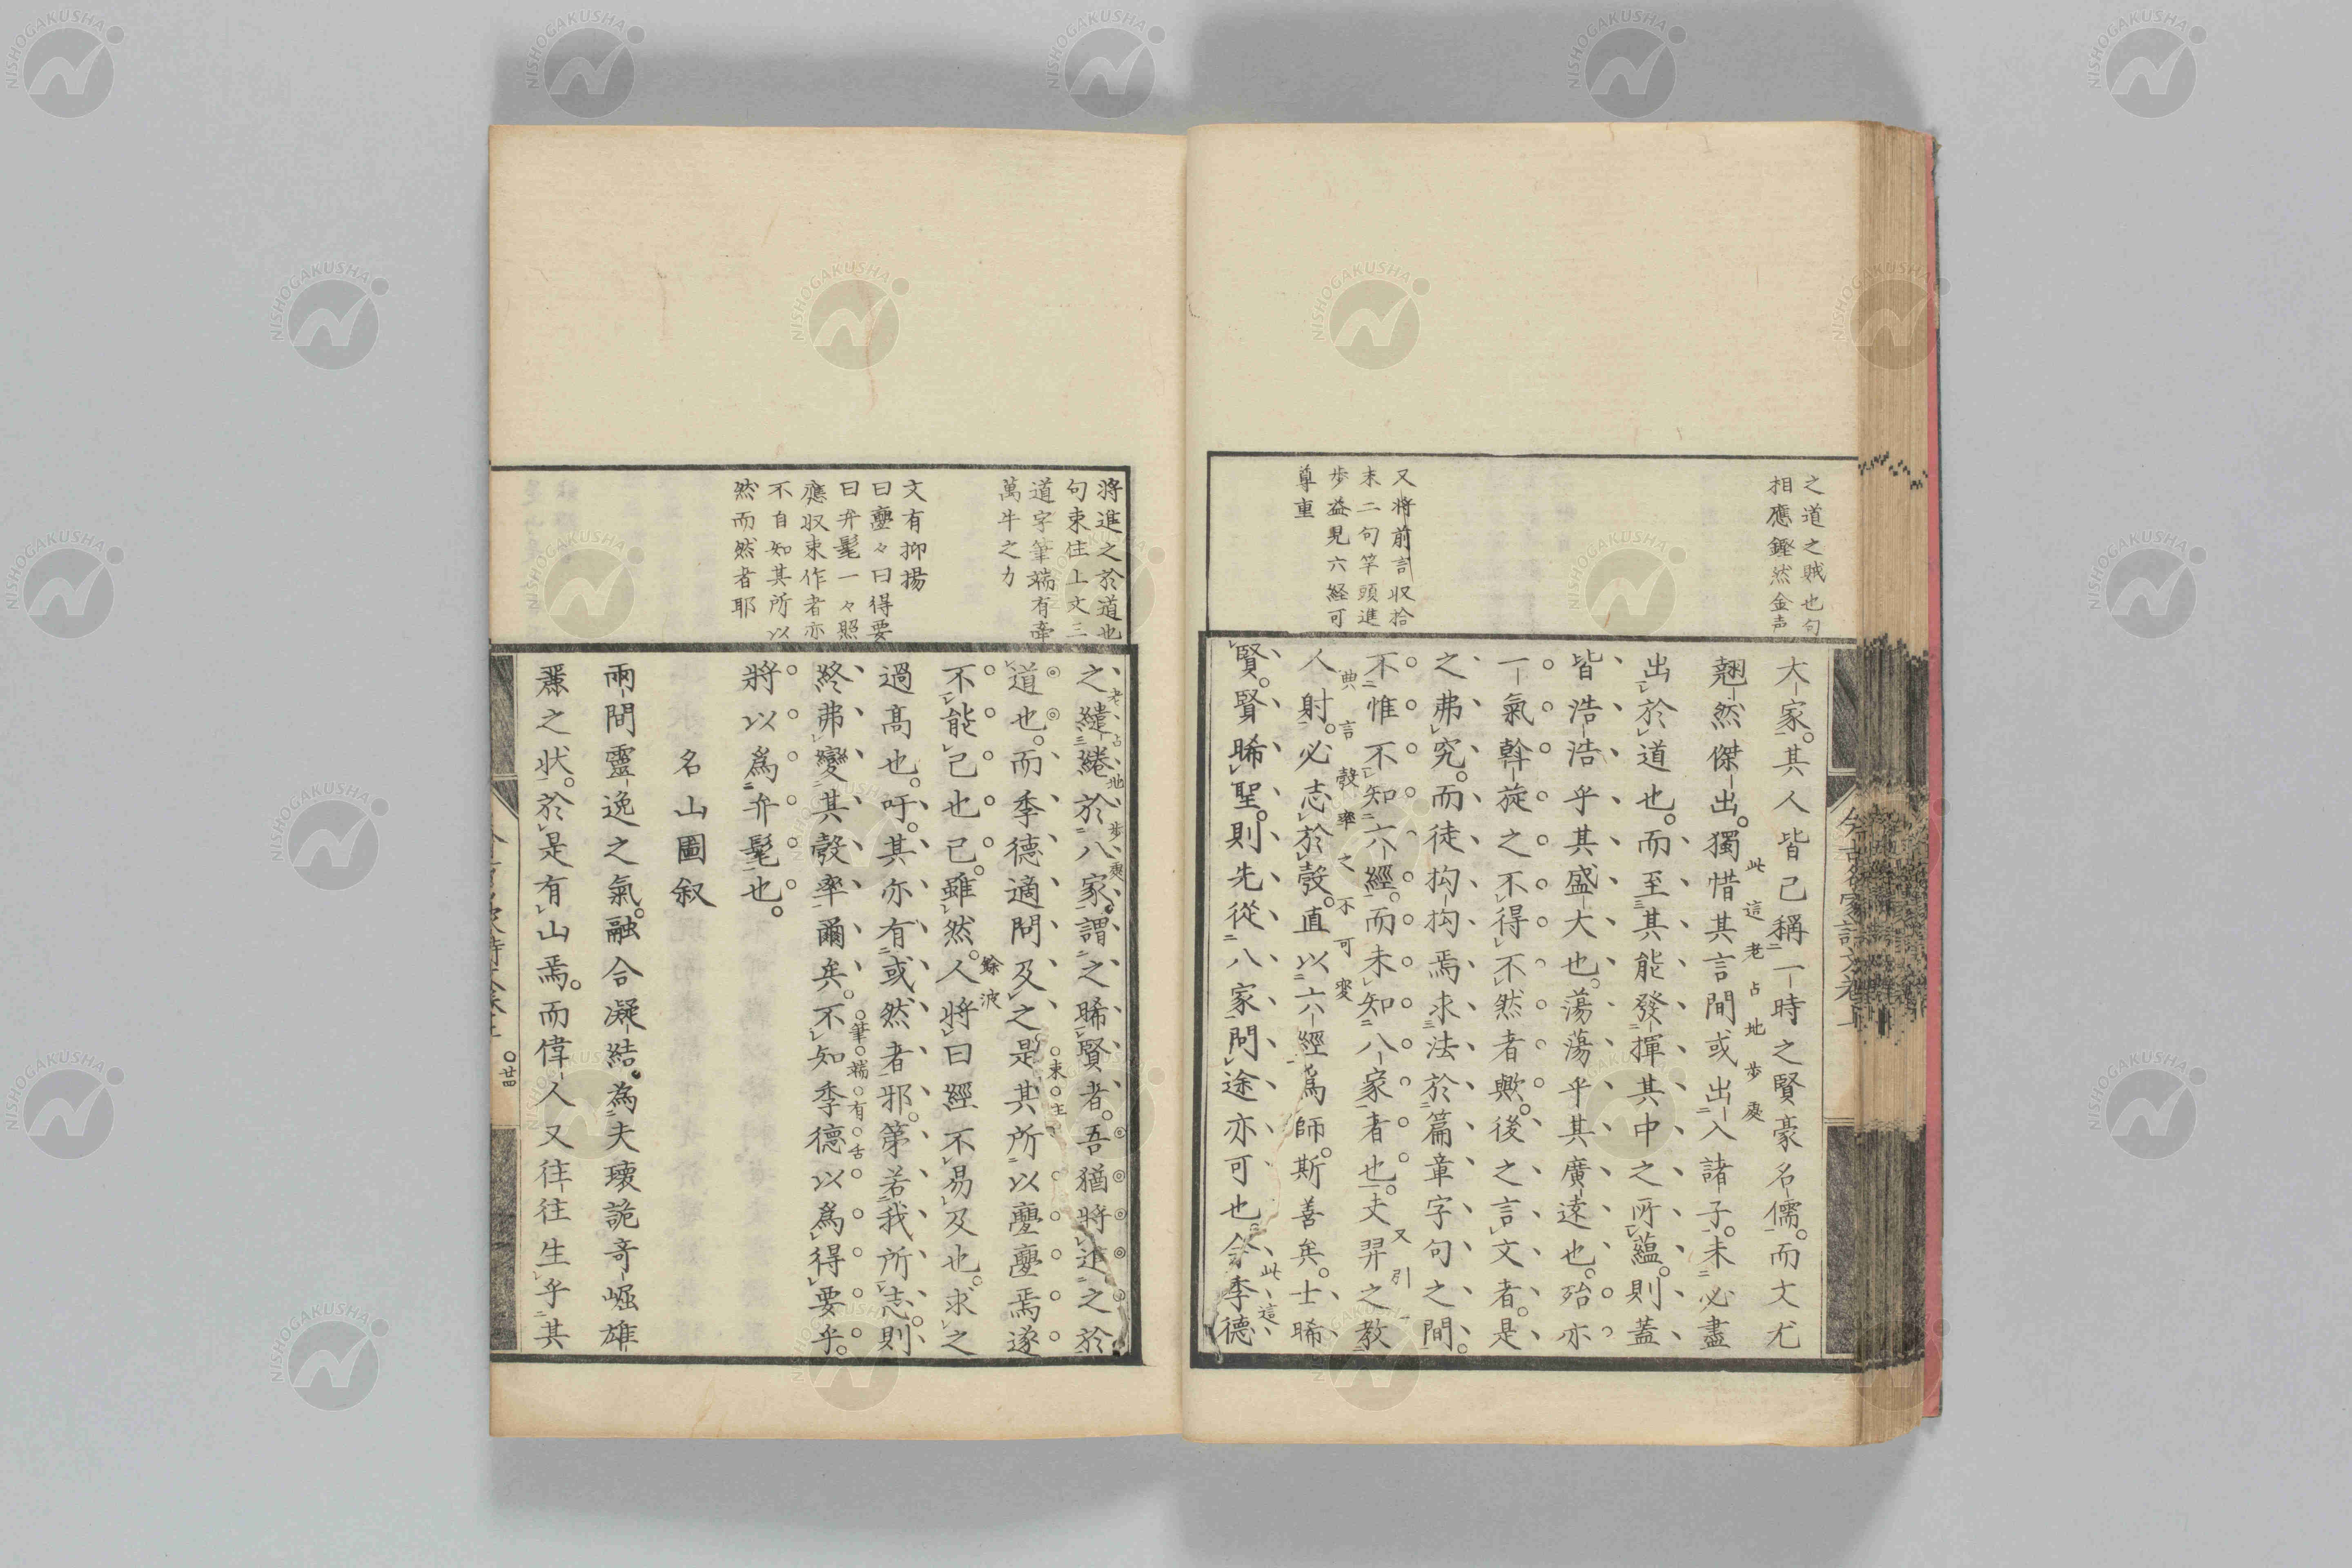 之道之賊也句
相應鏗然金声
又將前言収拾
末二句竿頭進
步益見六経可
尊重
大家其人皆已稱一時之賢豪名儒而文尤
翹然傑出獨惜其言間或出入諸子未必盡
此這老占地步處
出於道也而至其能發揮其中之所蘊則蓋
皆浩浩乎其盛大也蕩蕩乎其廣遠也殆亦
一氣斡旋之不得不然者歟後之言文者是
之弗究而徒拘拘焉求法於篇章字句之間
不惟不知六經而未知八家者也夫羿之教
又引
典言彀率之不可変
人射必志於彀直以六經爲師斯善矣士睎
賢賢睎聖則先從八家問途亦可也今季德
此這
今古名家詩文卷
將進之於道也
句束住上文三
道字筆端有牽
萬牛之力
文有抑揚
曰亹々曰得要
曰弁髦一々照
應収束作者亦
不自知其所以
然而然者耶
老占地步處
之繾綣於八家謂之睎賢者吾猶將進之於
道也而季德適問及之是其所以亹亹焉遂
束主
不能已也已雖然人將曰經不易及也求之
餘波
過髙也吁其亦有或然者邪第若我所志則
終弗變其彀率爾矣不知季德以爲得要乎
筆端有舌
將以爲弁髦也
名山圖叙
兩間靈逸之氣融合凝結為夫瓌詭奇崛雄
麗之状於是有山焉而偉人又往往生乎其
廿四
NISHOGAKUSHA